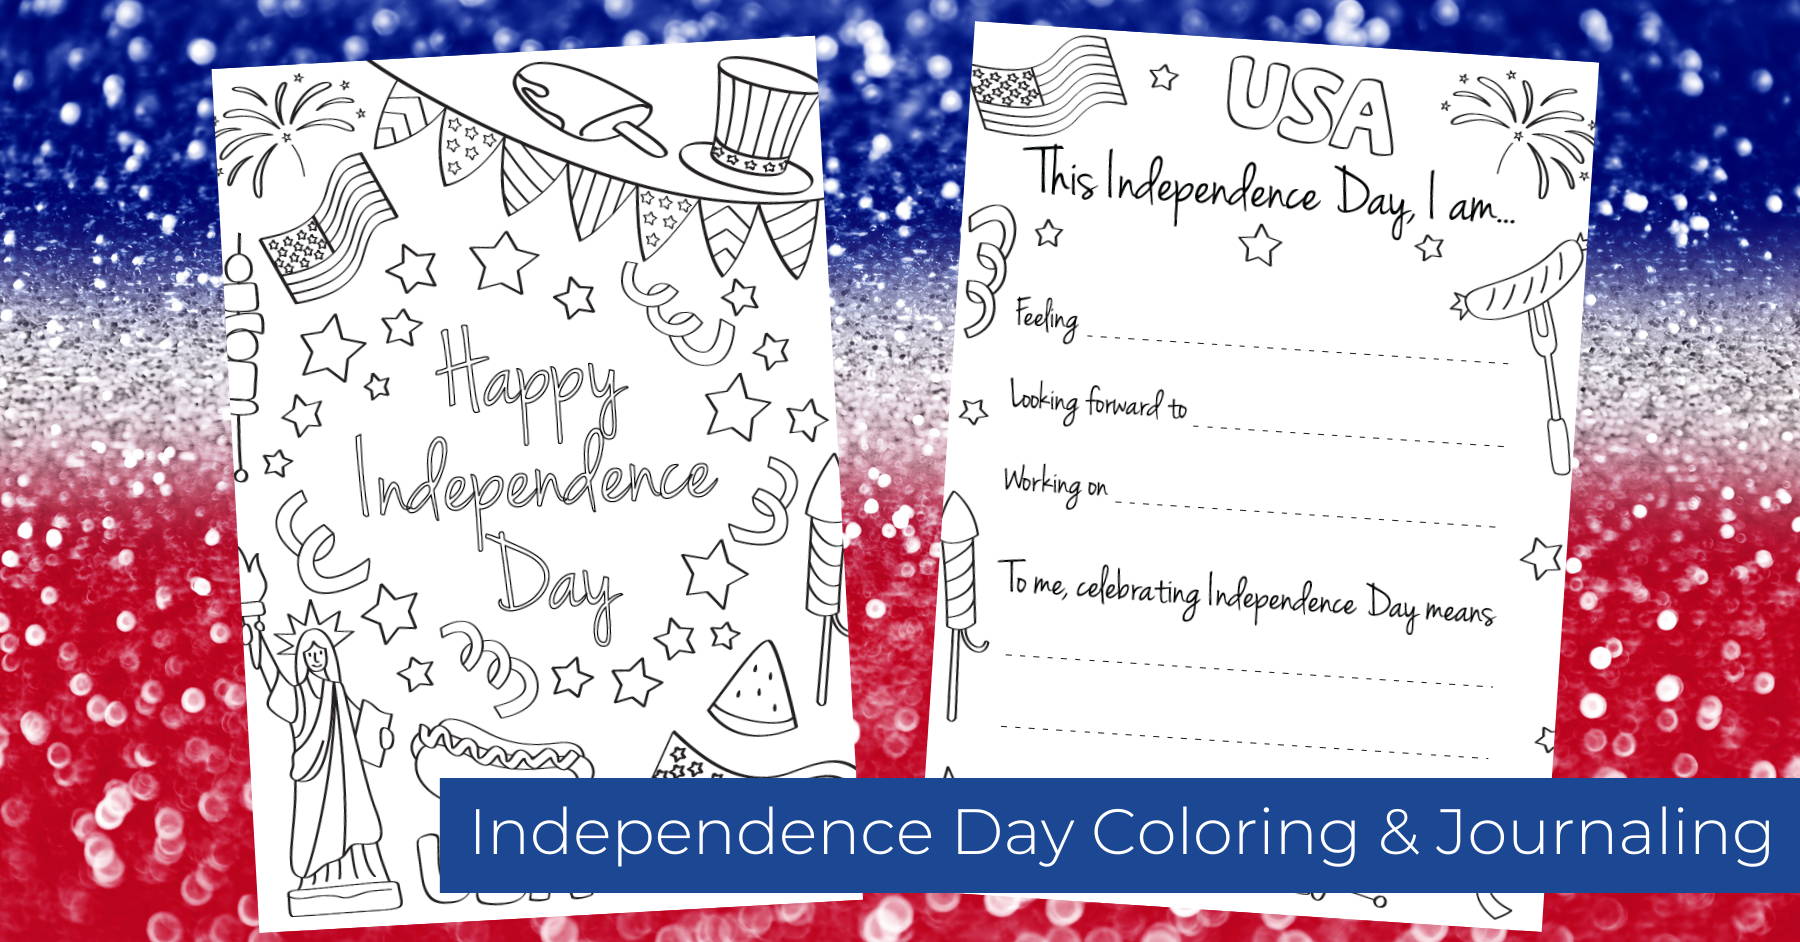 Happy
Independence
Day
USA
USA
This Independence Day, I am...
Feeling
Looking forward to
Working on
To me, celebrating Independence Day means
Independence Day Coloring & Journaling